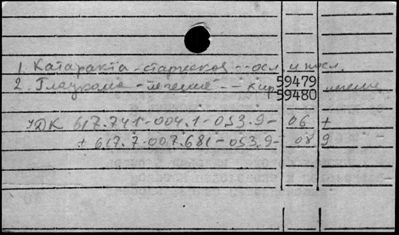 1. Катаракта - старческая - осл. и посл.
2. Глаукома - лечение - хир. лечение
59479
59480
УДК 617.741-004.1-053.9-06 +
+ 617.7-007.681-053.9-089